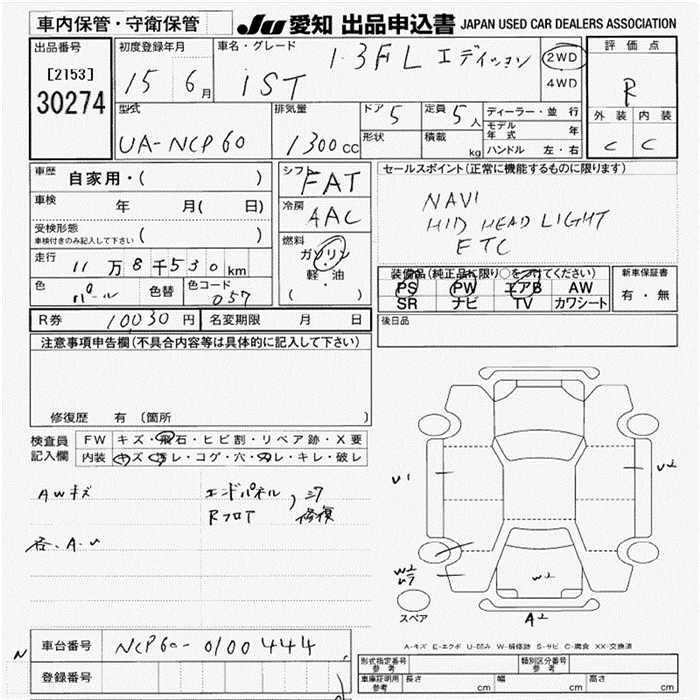 車内保管・守衛保管
JU 愛知 出品申込書 JAPAN USED CAR DEALERS ASSOCIATION
出品番号
[2153]
30274
初度登録年月
15 6月
車名・グレード
1.3FL エディション
iST
2WD
4WD
評価点
R
外装 内装
C C
型式
UA-NCP60
排気量
1300cc
ドア 5
形状
定員 5人
積載 kg
ディーラー・並行
モデル年式 年
ハンドル 左・右
車歴 自家用・( )
車検 年 月( 日)
受検形態
車検付きのみ記入して下さい ( )
走行 11万8千530km
色 パール 色替
色コード 057
シフト FAT
冷房 AAC
燃料
ガソリン
軽・油
( ・ )
セールスポイント(正常に機能するものに限ります)
NAVI
HID HEAD LIGHT
ETC
装備品(純正品に限り○をつけてください)
PS PW エアB AW
SR ナビ TV カワシート
新車保証書
有・無
後日品
R券 10030円 名変期限 月 日
注意事項申告欄(不具合内容等は具体的に記入して下さい)
修復歴 有 (箇所
検査員
記入欄
FW キズ・飛石・ヒビ割・リペア跡・X要
内装 キズ・汚レ・コゲ・穴・スレ・キレ・破レ
AWキズ
エンドパネル
Rフロア
修復
各.A.U
U1
U2
W2
W2
A2
スペア
A-キズ E-エクボ U-凹み W-補修跡 S-サビ C-腐食 XX-交換済
N
車台番号 NCP60-0100444
登録番号
形式指定番号
参考
類別区分番号
参考
車庫証明用
参考
長さ cm 幅 cm 高さ cm